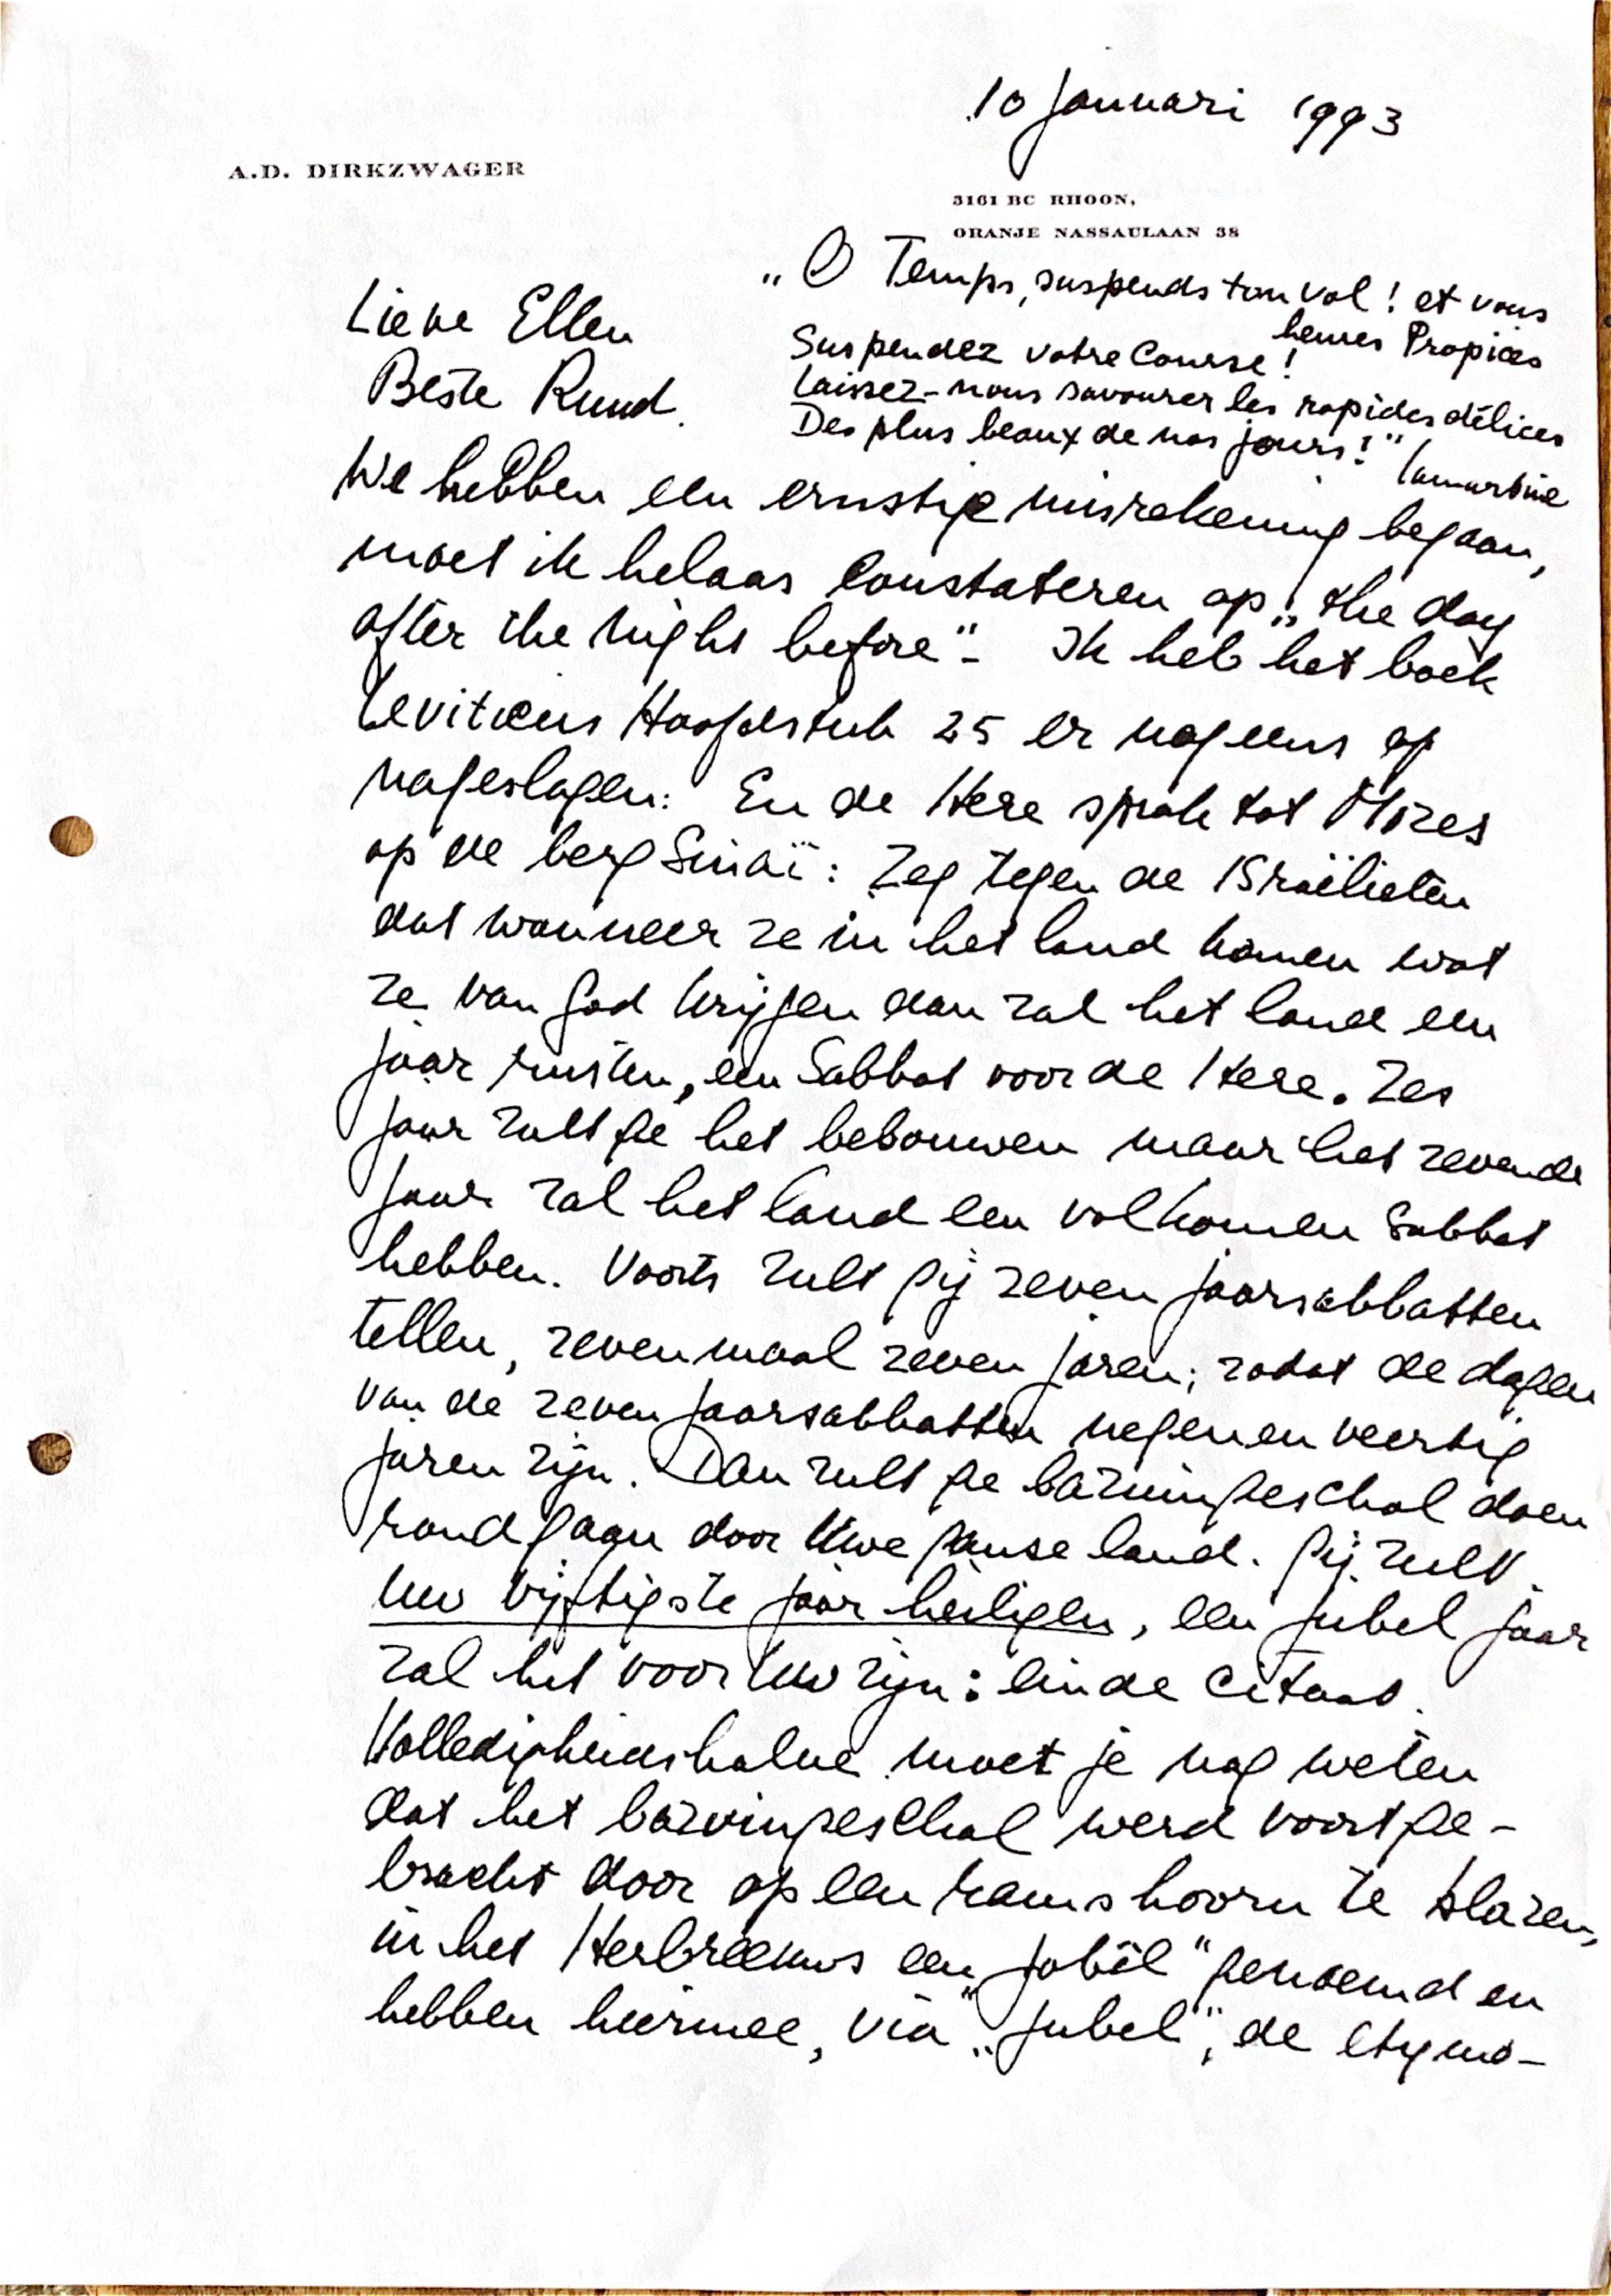 10 Januari 1993
A.D. DIRKZWAGER
3161 BC RHOON,
ORANJE NASSAULAAN 38
„O Temps, suspends ton vol! et vous
heures Propices
Suspendez votre Course!
Laissez-nous savourer les rapides délices
Des plus beaux de nos jours!"
Lamartine
Lieve Ellen
Beste Ruud.
We hebben een ernstige misrekening begaan,
moet ik helaas constateren op „the day
after the night before"- Ik heb het boek
Leviticus Hoofdstuk 25 er nog eens op
nageslagen: En de Here sprak tot Mozes
op de berg Sinaï: Zeg tegen de Israëlieten
dat wanneer ze in het land komen wat
ze van God krijgen dan zal het land een
jaar rusten, een Sabbat voor de Here. Zes
jaar zult ge het bebouwen maar het zevende
jaar zal het land een volkomen Sabbat
hebben. Voorts zult gij zeven jaarsabbatten
tellen, zevenmaal zeven jaren; zodat de dagen
van de zeven jaarsabbatten negenenveertig
jaren zijn. Dan zult ge bazuingeschal doen
rondgaan door Uwe ganse land. Gij zult
Uw vijftigste jaar heiligen, een jubel jaar
zal het voor Uw zijn: einde citaat.
Volledigheidshalve moet je nog weten
dat het bazuingeschal werd voortge-
bracht door op een ramshoorn te blazen,
in het Herbreeuws een „jobël" genoemd en
hebben hiermee, via „jubel", de etymo-